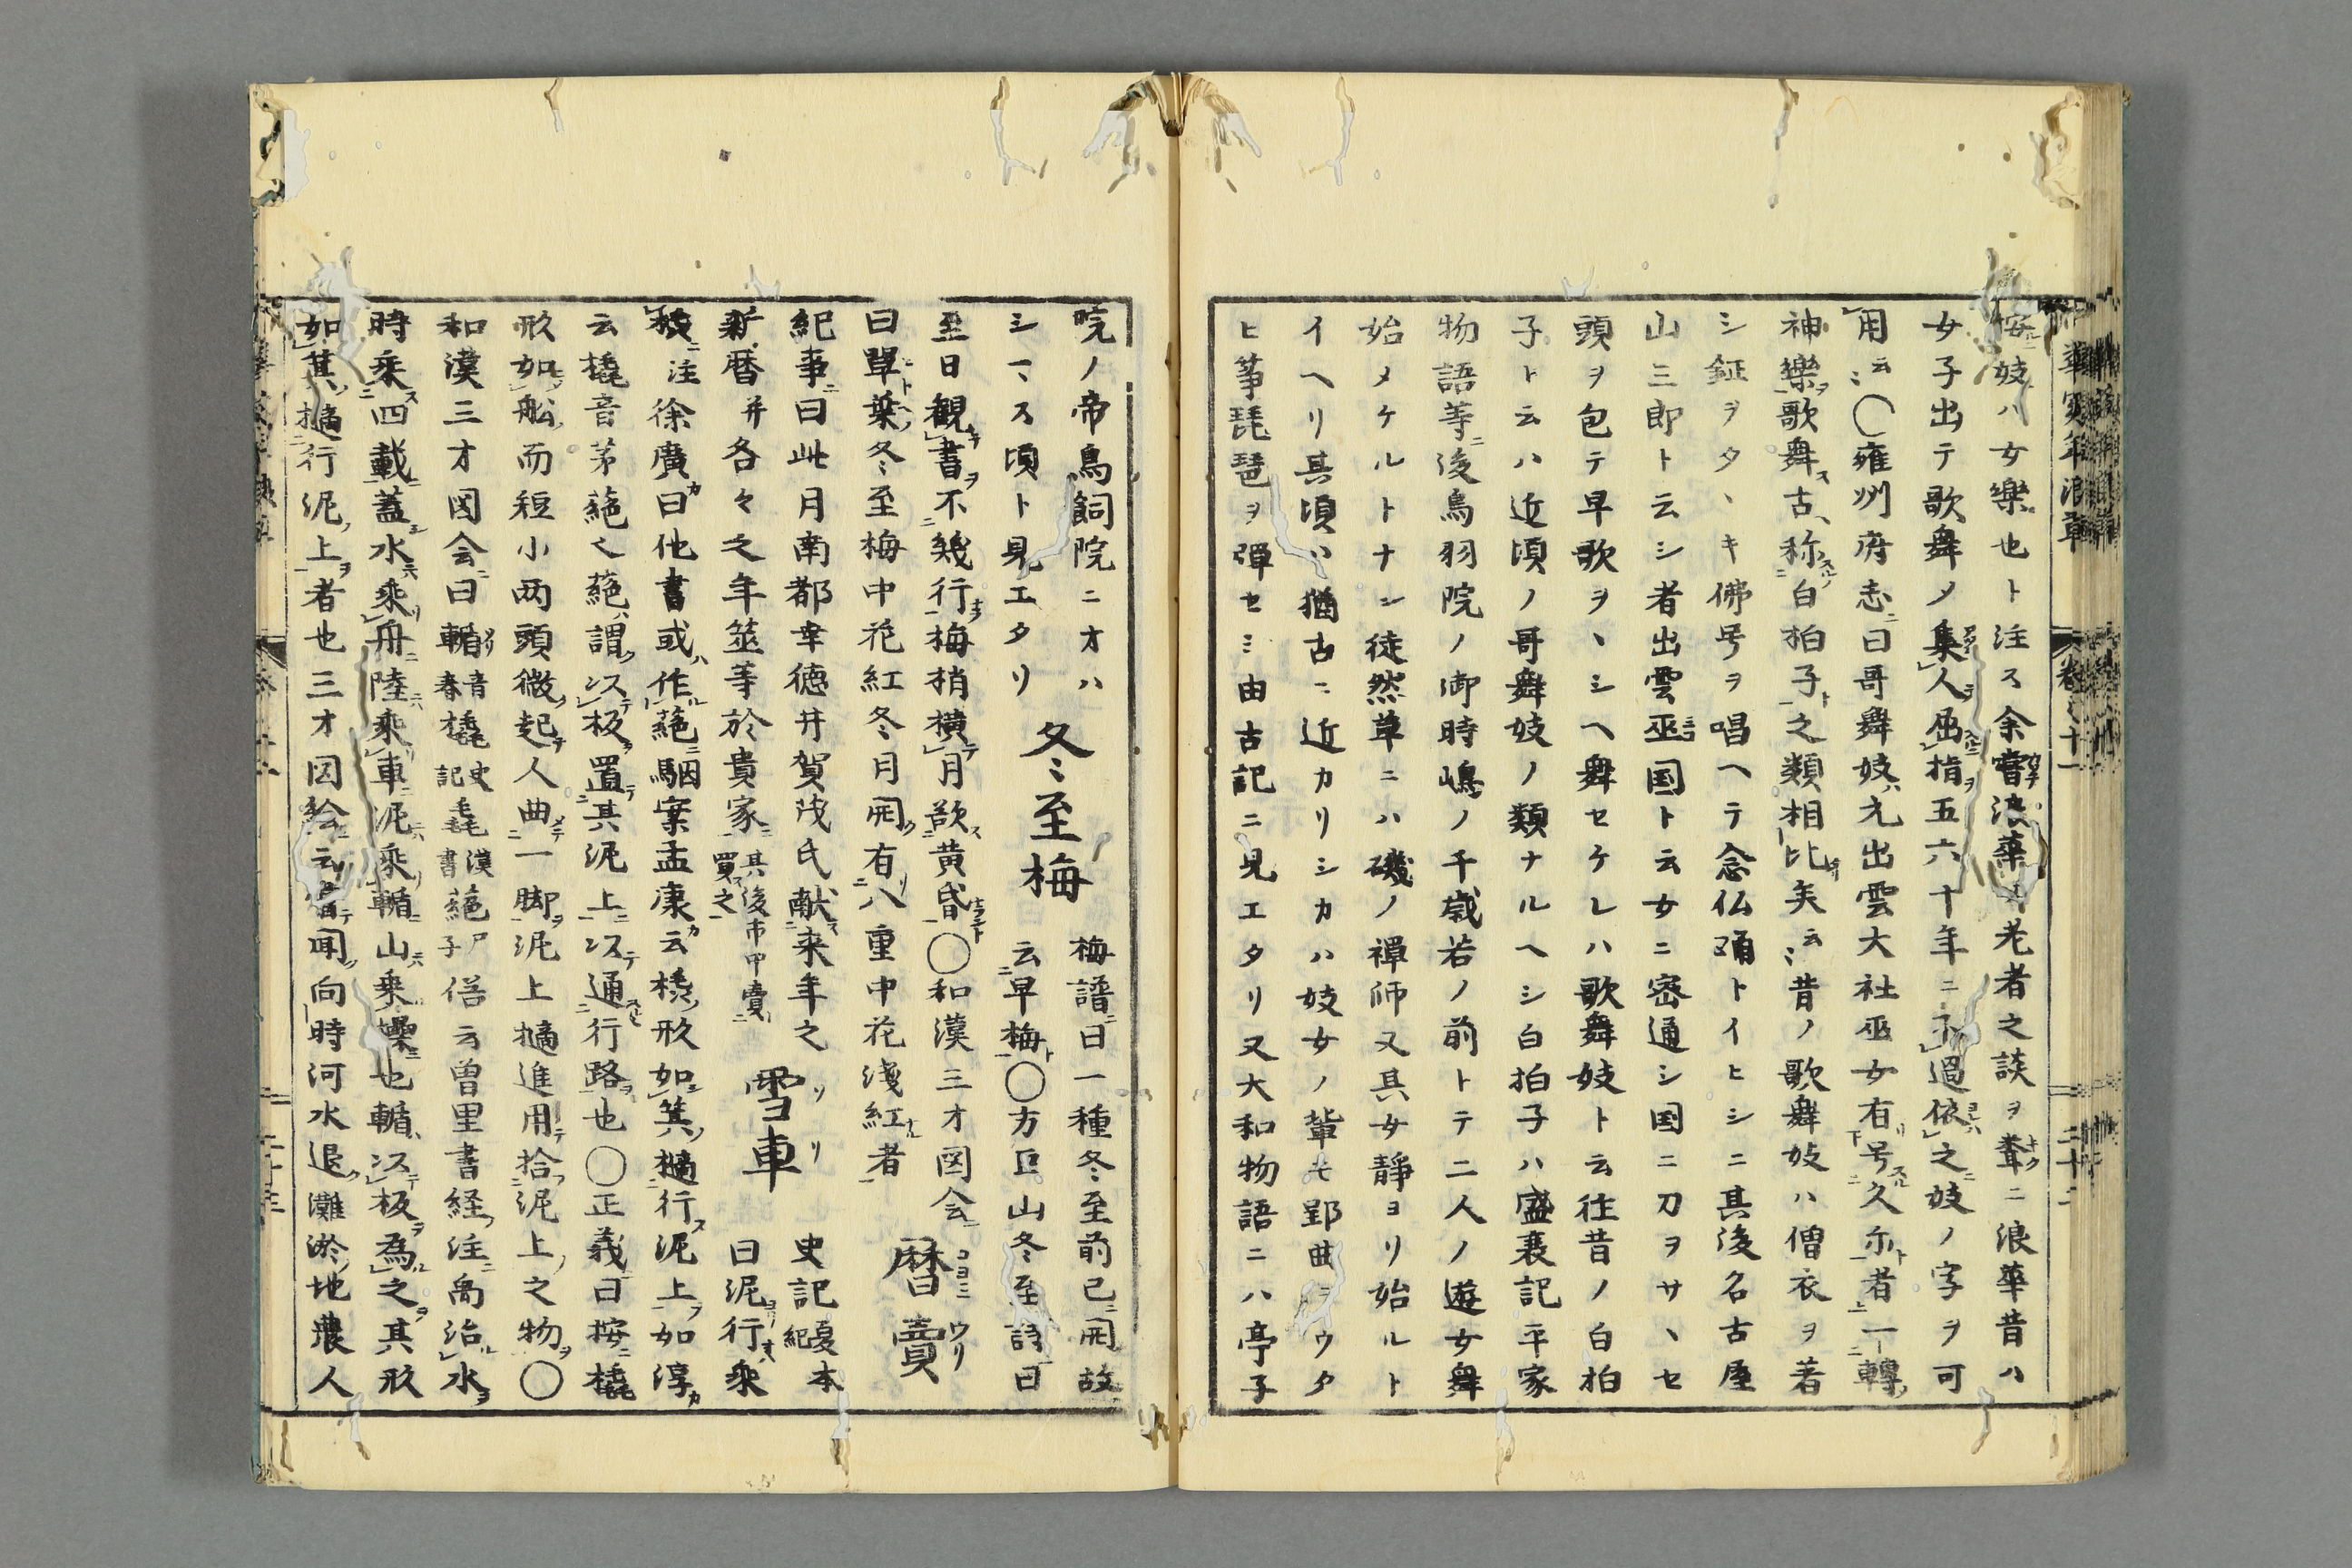 華実年浪草
巻之十一
二十二
按妓ハ女樂也ト注ス余嘗浪華ノ老者之談ヲ聟ニ浪華昔ハ
女子出テ歌舞ノ集人屈指五六十年ニ不過依之妓ノ字ヲ可
用云々〇雍州府志曰哥舞妓元出雲大社巫女有号久尓者一轉
神樂歌舞古称白拍子之類相比矣云々昔ノ歌舞妓ハ僧衣ヲ著
シ鉦ヲタヽキ佛号ヲ唱ヘテ念仏踊トイヒシニ其後名古屋
山三郎ト云シ者出雲巫国ト云女ニ密通シ国ニ刀ヲサヽセ
頭ヲ包テ早歌ヲヽシヘ舞セケレハ歌舞妓ト云往昔ノ白拍
子ト云ハ近頃ノ哥舞妓ノ類ナルヘシ白拍子ハ盛衰記平家
物語等ニ後鳥羽院ノ御時嶋ノ千歳若ノ前トテ二人ノ遊女舞
始メケルトナシ徒然草ニハ磯ノ禪师又其女靜ヨリ始ルト
イヘリ其頃ハ猶古ニ近カリシカハ妓女ノ輩モ郢曲ヲウタ
ヒ筝琵琶ヲ彈セミ由古記ニ見エタリ又大和物語ニハ亭子
院ノ帝鳥飼院ニオハ
シマス頃ト見エタリ
冬至梅
梅譜曰一種冬至前已開故
云早梅〇方巨山冬至詩曰
至日観書不幾行梅梢横月欲黄昏〇和漢三才図会
曰單葉冬至梅中花紅冬月開有八重中花淺紅者
暦賣
コヨミウリ
紀事曰此月南都幸徳井賀茂氏献来年之
新暦并各々之年筮等於貴家其後市中賣買之
雪車
ソリ
史記夏本紀
曰泥行乘
橇注徐廣曰他書或作蕝駰案孟康云橇形如箕擿行泥上如淳
云橇音茅蕝之蕝謂以板置其泥上以通行路也〇正義曰按橇
形如船而短小两頭微起人曲一脚泥上擿進用拾泥上之物〇
和漢三才図会曰輴音春橇史記毳漢書蕝尸子俗云曽里書経注禹治水
時乘四載蓋水乘舟陸乘車泥乘輴山乘樏也輴以板為之其形
如箕擿行泥上者也三才図絵云嘗聞向時河水退灘淤地農人